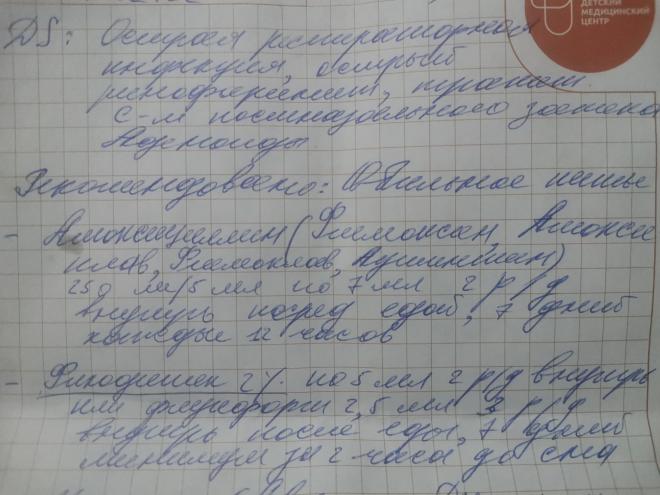 ДЕТСКИЙ
МЕДИЦИНСКИЙ
ЦЕНТР
DS: Острая респираторная
инфекция, острый
ринофарингит, трахеит
с-м постназального затека
Аденоиды
Рекомендовано: Обильное питье
- Амоксициллин (Флемоксин, Амокси
клав, Флемоклав,
250 мг/5 мл по 7 мл 2 р/д
внутрь перед едой, 7 дней
каждые 12 часов
- Флюдитек 2% по 5 мл 2 р/д внутрь
или флуифорт 2,5 мл 3 р/д
внутрь после еды, 7 дней
минимум за 2 часа до сна